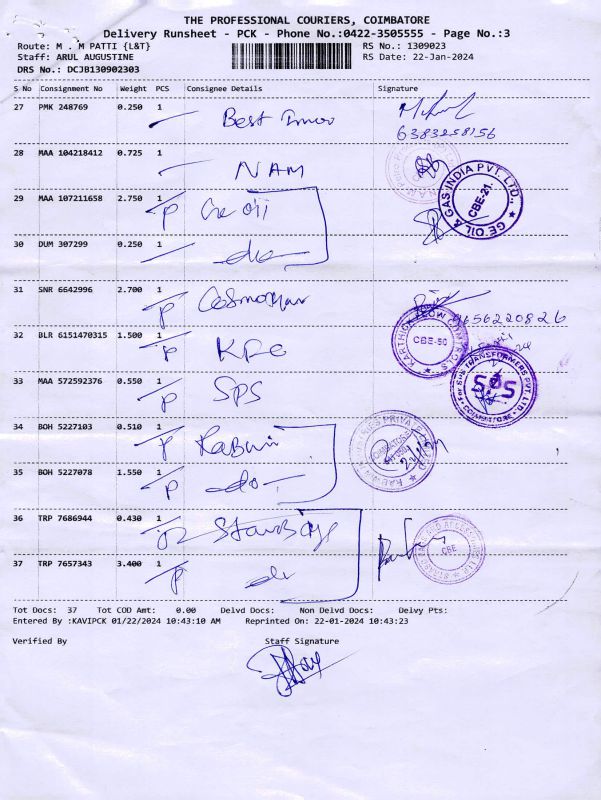 THE PROFESSIONAL COURIERS, COIMBATORE
Delivery Runsheet - PCK - Phone No.:0422-3505555 - Page No.:3
Route: M . M PATTI {L&T} RS No.: 1309023
Staff: ARUL AUGUSTINE RS Date: 22-Jan-2024
DRS No.: DCJB130902303
S No Consignment No Weight PCS Consignee Details Signature
27 PMK 248769 0.250 1 Best
6383258156
28 MAA 104218412 0.725 1 NAM
29 MAA 107211658 2.750 1 Ge oil
GE OIL & GAS INDIA PVT. LTD.,
CBE-21.
30 DUM 307299 0.250 1 do
31 SNR 6642996 2.700 1
9656220826
32 BLR 6151470315 1.500 1 KFC
KARTHICK FLOW CONTROLS
CBE-50
33 MAA 572592376 0.550 1 SPS
For SPS TRANSFORMERS PVT. LTD.
SPS
COIMBATORE
34 BOH 5227103 0.510 1
35 BOH 5227078 1.550 1 do
36 TRP 7686944 0.430 1
CBE
37 TRP 7657343 3.400 1 do
Tot Docs: 37 Tot COD Amt: 0.00 Delvd Docs: Non Delvd Docs: Delvy Pts:
Entered By :KAVIPCK 01/22/2024 10:43:10 AM Reprinted On: 22-01-2024 10:43:23
Verified By Staff Signature